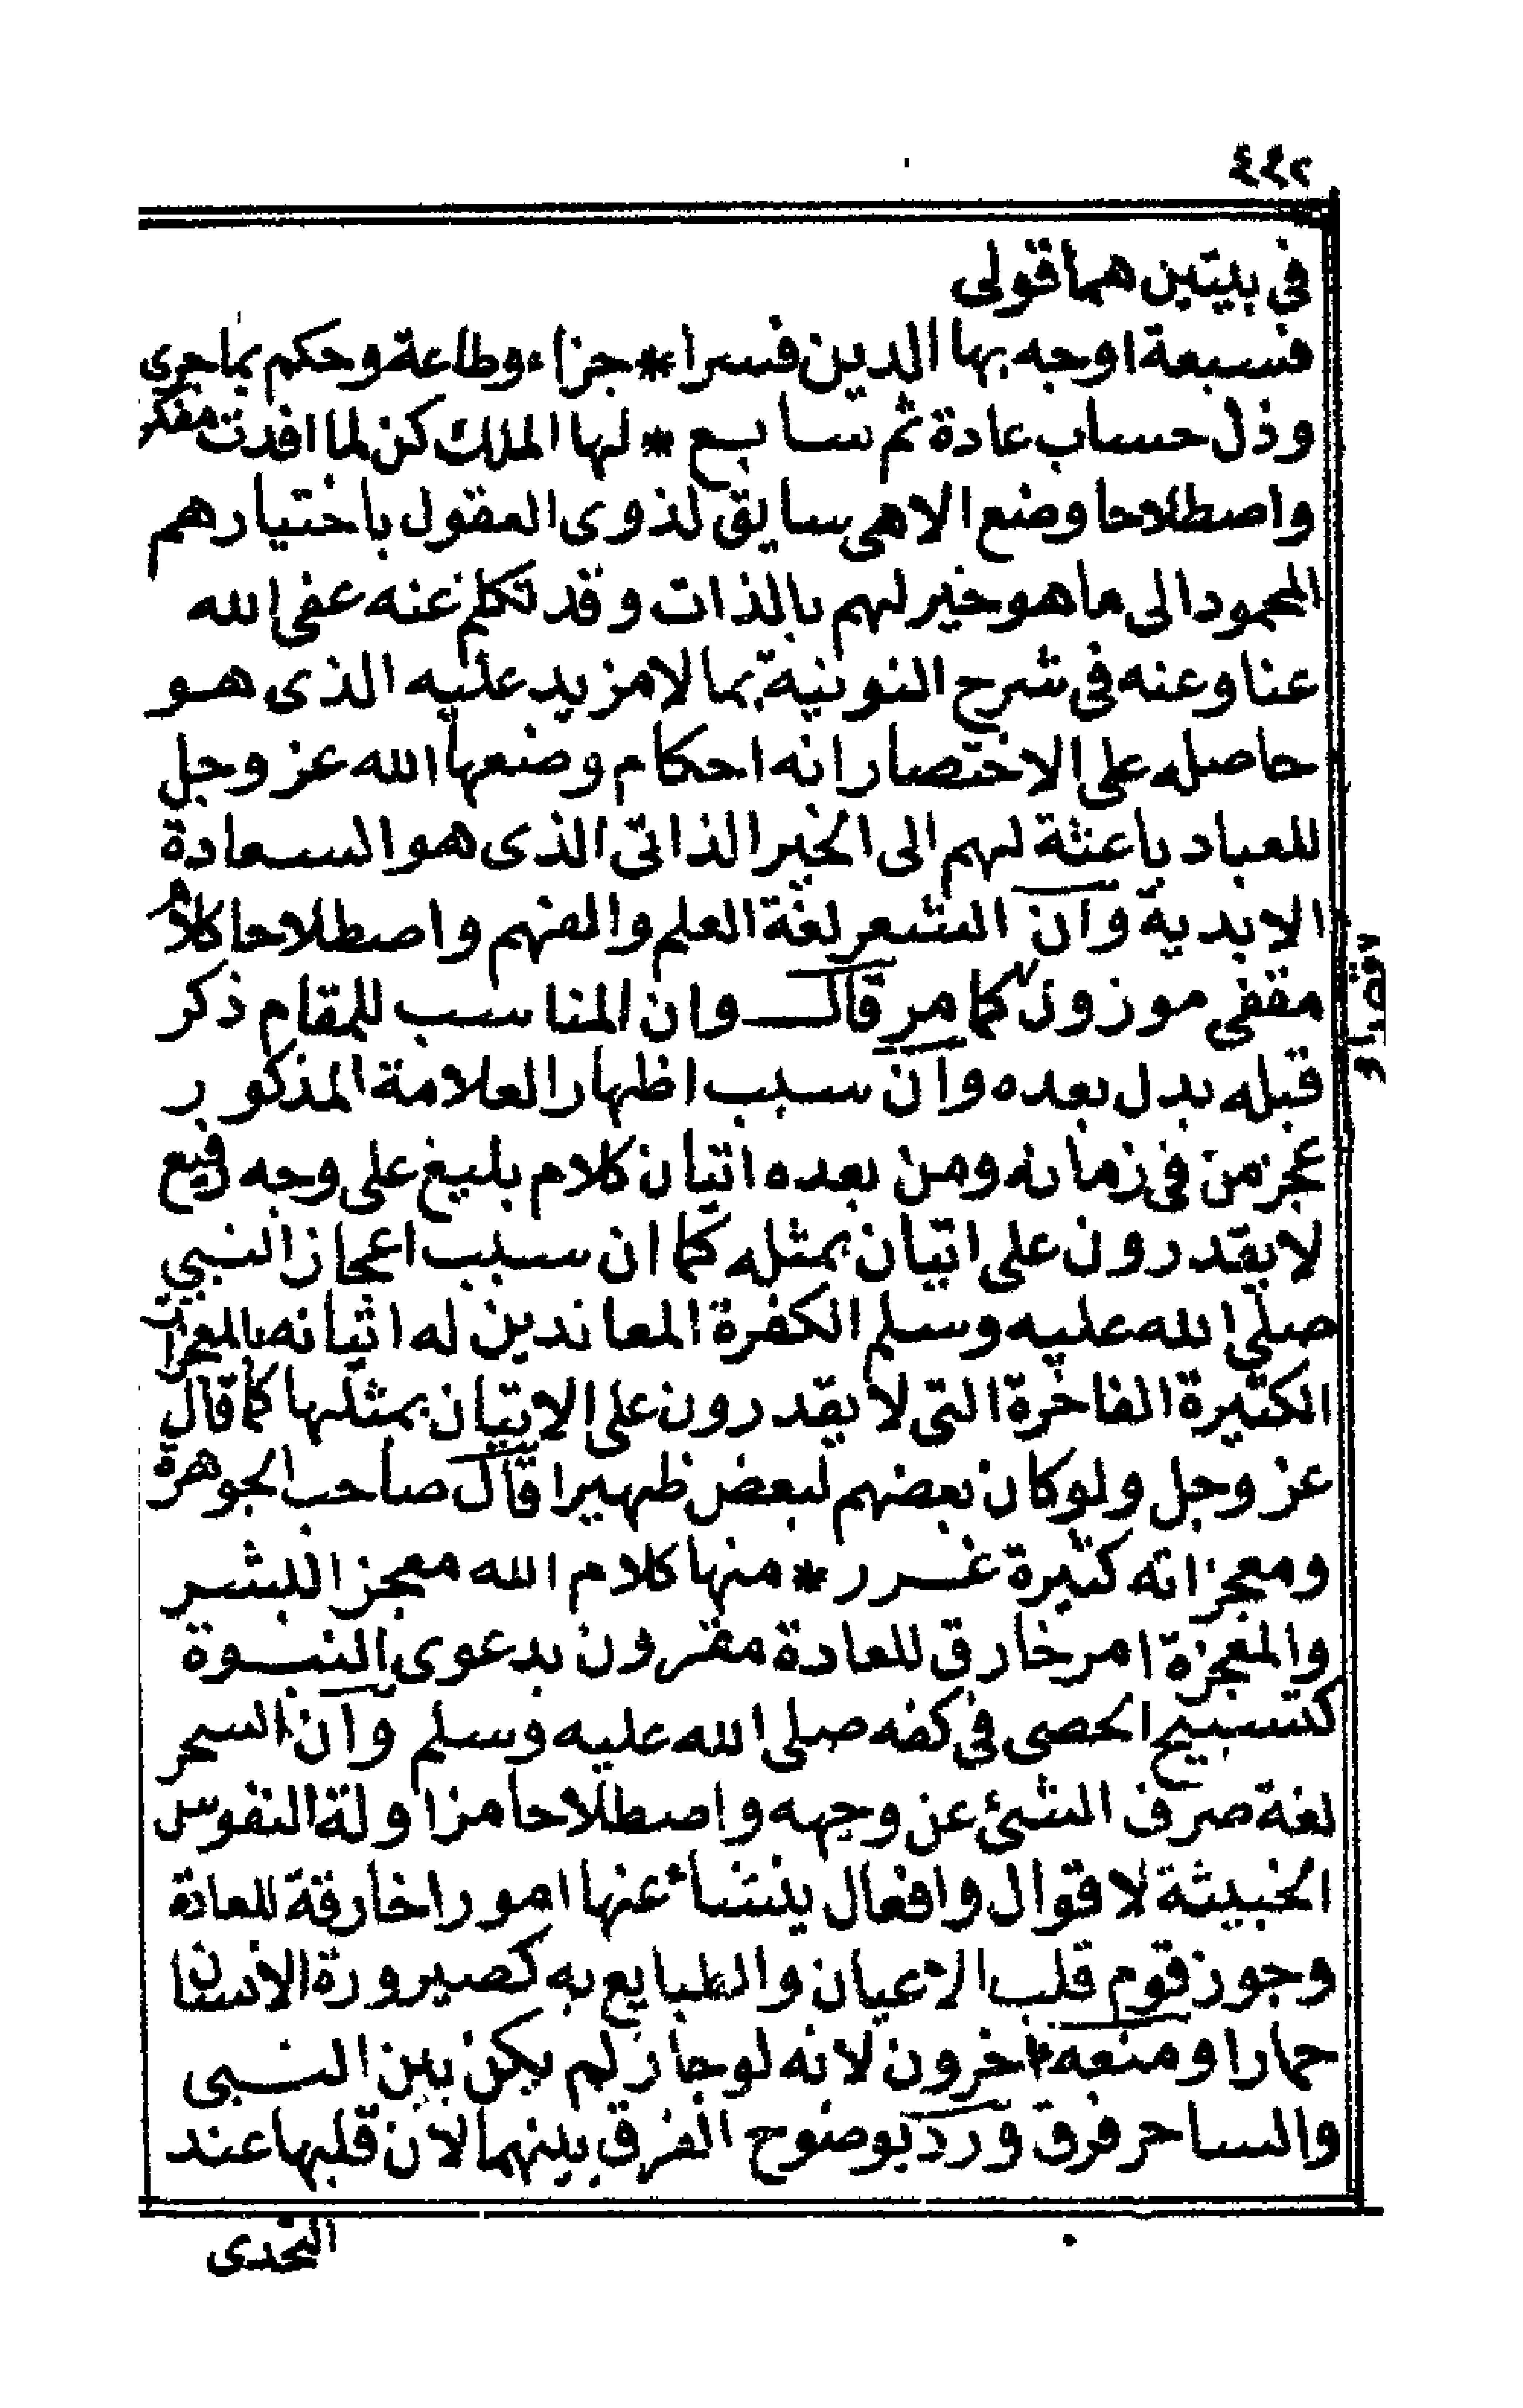 ٤٤٢
في بيتين هما قولى
فسبعة اوجه بها الدين فسرا * جزاء وطاعة وحكم بما جرى
وذل حساب عادة ثم سابع * لها الملك كن لما افدت مفكر
واصطلاحا وضع الاهى سايق لذوى العقول باختيارهم
المحمود الى ما هو خير لهم بالذات وقد تكلم عنه عفى الله
عنا وعنه فى شرح النونية بما لا مزيد عليه الذى هو
حاصله على الاختصار انه احكام وضعها الله عز وجل
للعباد باعثة لهم الى الخير الذاتى الذى هو السعادة
الابدية وان الشعر لغة العلم والفهم واصطلاحا كلام
مقفى موزون كما مر قال وان المناسب للمقام ذكر
قبله بدل بعده وان سبب اظهار العلامة المذكور
عجز من فى زمانه ومن بعده اتيان كلام بليغ على وجه رفيع
لا يقدرون على اتيان بمثله كما ان سبب اعجاز النبي
صلى الله عليه وسلم الكفرة المعاندين له اتيانه بالمعجزات
الكثيرة الفاخرة التى لا يقدرون على الاتيان بمثلها كما قال
عز وجل ولو كان بعضهم لبعض ظهيرا قال صاحب الجوهرة
ومعجزاته كثيرة غرر * منها كلام الله معجز البشر
والمعجزة امر خارق للعادة مقرون بدعوى النبوة
كتسبيح الحصى فى كفه صلى الله عليه وسلم وان السحر
لغة صرف الشئ عن وجهه واصطلاحا مزاولة النفوس
الخبيثة لاقوال وافعال ينشأ عنها امورا خارقة للعادة
وجوز قوم قلب الاعيان والطبايع به كصيرورة الانسان
حمارا ومنعه اخرون لانه لو جاز لم يكن بين النبى
والساحر فرق ورد بوضوح الفرق بينهما لان قلبها عند
التحدى